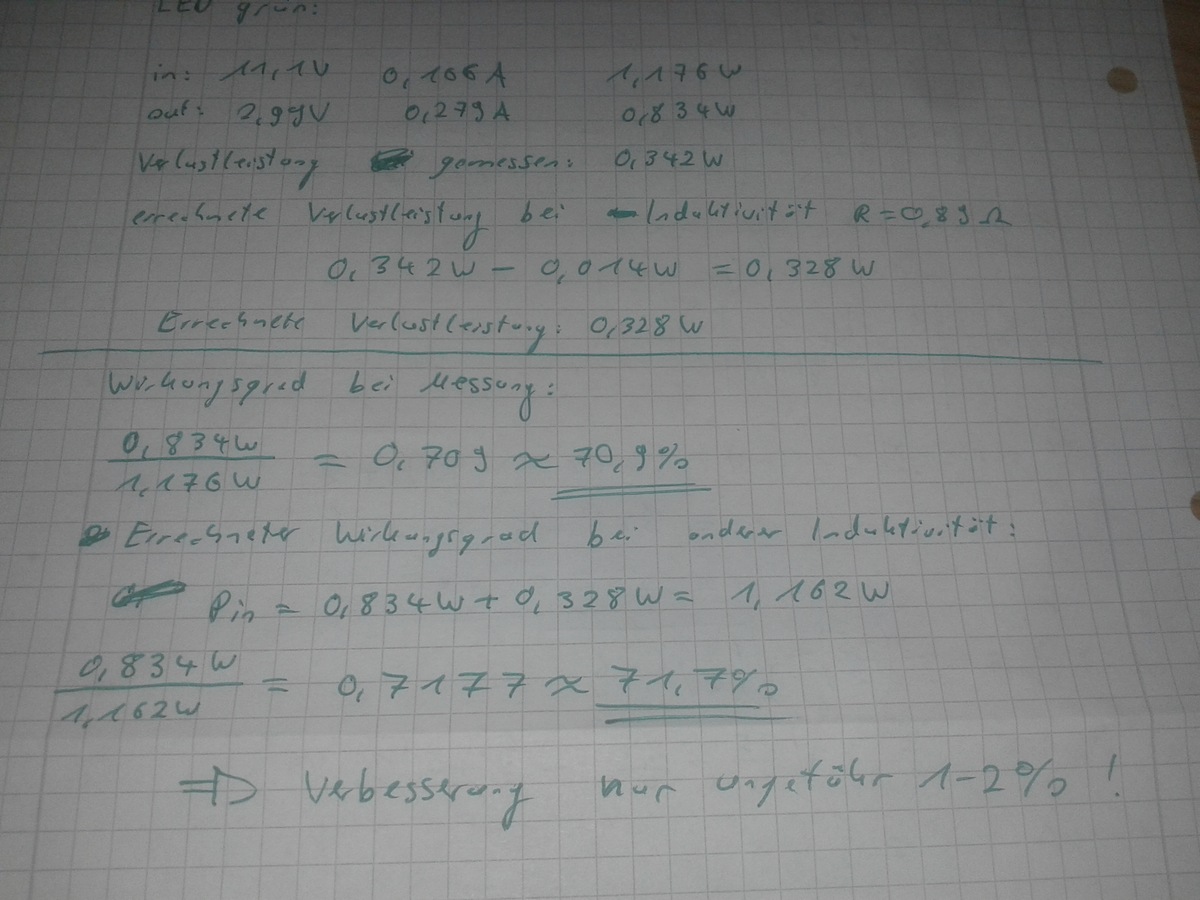 LED grün:
in: 11,1V 0,106A 1,176W
out: 2,99V 0,279A 0,834W
Verlustleistung gemessen: 0,342W
errechnete Verlustleistung bei Induktivität R=0,89Ω
0,342W - 0,014W = 0,328W
Errechnete Verlustleistung: 0,328W
Wirkungsgrad bei Messung:
0,834W
1,176W = 0,709 ≈ 70,9%
Errechneter Wirkungsgrad bei anderer Induktivität:
Pin = 0,834W + 0,328W = 1,162W
0,834W
1,162W = 0,7177 ≈ 71,7%
⇒ Verbesserung nur ungefähr 1-2% !